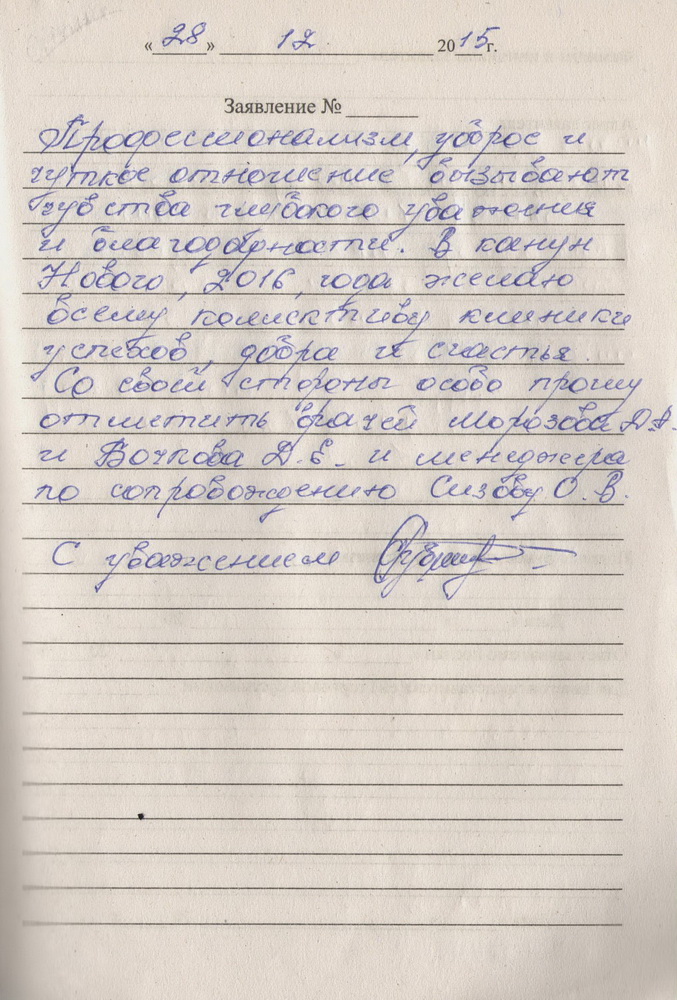 «28» 12 2015г.
Заявление №
Профессионализм, доброе и
чуткое отношение вызывают
чувства глубокого уважения
и благодарности. В канун
Нового, 2016, года желаю
всему коллективу клиники
успехов, добра и счастья.
Со своей стороны особо прошу
отметить врачей Морозова Д.А.
и Бочкова Д.Е. и менеджера
по сопровождению Сизову О.В.
С уважением